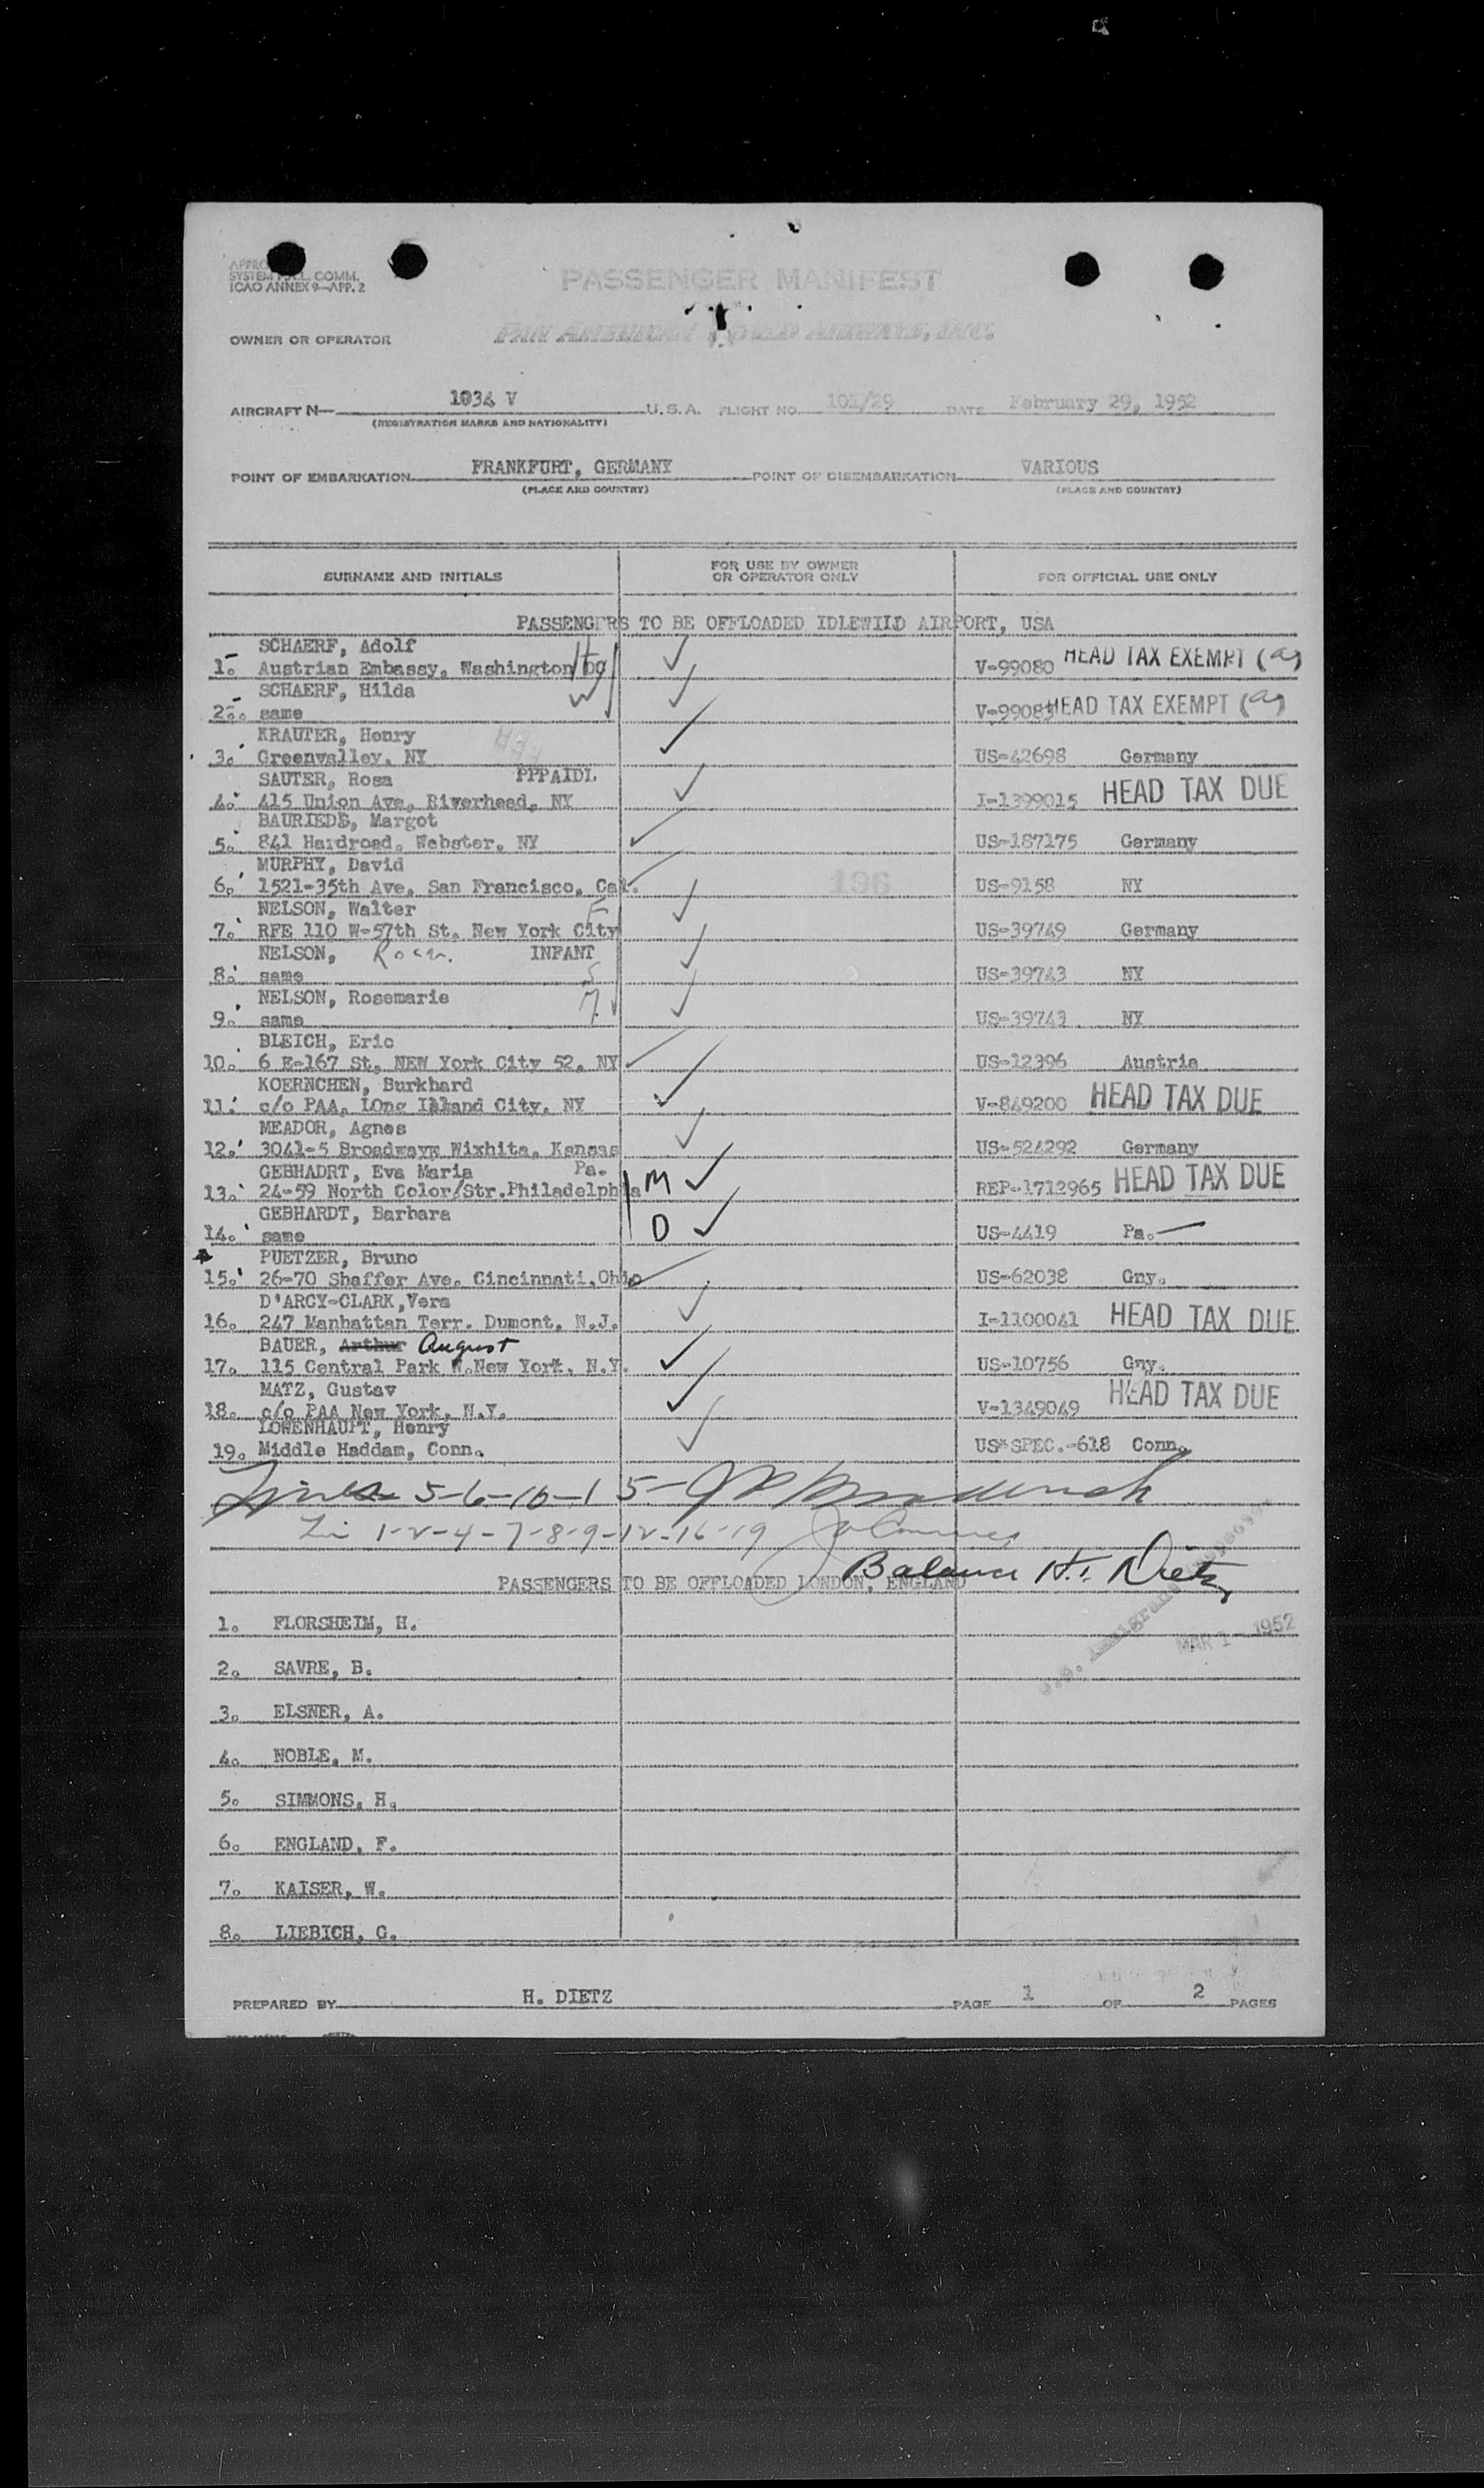 SYSTEM COMM.
ICAO ANNEX 9—APP. 2
PASSENGER MANIFEST
OWNER OR OPERATOR PAN AMERICAN WORLD AIRWAYS, INC.
AIRCRAFT N— 1034 V U.S.A. FLIGHT NO. 101/29 DATE February 29, 1952
(REGISTRATION MARKS AND NATIONALITY)
POINT OF EMBARKATION FRANKFURT, GERMANY POINT OF DISEMBARKATION VARIOUS
(PLACE AND COUNTRY) (PLACE AND COUNTRY)
SURNAME AND INITIALS FOR USE BY OWNER OR OPERATOR ONLY FOR OFFICIAL USE ONLY
PASSENGERS TO BE OFFLOADED IDLEWILD AIRPORT, USA
SCHAERF, Adolf
1. Austrian Embassy, Washington DC V-99080 HEAD TAX EXEMPT (a)
SCHAERF, Hilda
2. same V-99083 HEAD TAX EXEMPT (a)
KRAUTER, Henry
3. Greenvalley, NY US-42698 Germany
SAUTER, Rosa PPPAIDL
4. 415 Union Ave, Riverhead, NY I-1399015 HEAD TAX DUE
BAURIEDE, Margot
5. 841 Hardroad, Webster, NY US-187175 Germany
MURPHY, David
6. 1521-35th Ave, San Francisco, Cal. 196 US-9158 NY
NELSON, Walter F
7. RFE 110 W-57th St, New York City US-39749 Germany
NELSON, INFANT
8. same S US-39743 NY
NELSON, Rosemarie
9. same M US-39743 NY
BLEICH, Eric
10. 6 E-167 St, NEW York City 52, NY US-12396 Austria
KOERNCHEN, Burkhard
11. c/o PAA, LOng Island City, NY V-849200 HEAD TAX DUE
MEADOR, Agnes
12. 3041-5 Broadways Wixhita, Kansas US-524292 Germany
GEBHADRT, Eva Maria Pa.
13. 24-59 North Color/Str.Philadelphia M REP-1712965 HEAD TAX DUE
GEBHARDT, Barbara
14. same D US-4419 Pa.
PUETZER, Bruno
15. 26-70 Shaffer Ave. Cincinnati,Ohio US-62038 Gny.
D'ARCY-CLARK,Vera
16. 247 Manhattan Terr. Dumont, N.J. I-1100041 HEAD TAX DUE
BAUER, Arthur August
17. 115 Central Park W.New York, N.Y. US-10756 Gny.
MATZ, Gustav
18. c/o PAA New York, N.Y. V-1349049 HEAD TAX DUE
LOWENHAUPT, Henry
19. Middle Haddam, Conn. US*SPEC.-618 Conn.
Lines 5-6-10-15-
Li 1-2-4-7-8-9-12-16-19
Balance H. Dietz
PASSENGERS TO BE OFFLOADED LONDON, ENGLAND
1. FLORSHEIM, H.
MAR 1 1952
2. SAVRE, B.
3. ELSNER, A.
4. NOBLE, M.
5. SIMMONS, H.
6. ENGLAND, F.
7. KAISER, W.
8. LIEBICH, G.
PREPARED BY H. DIETZ PAGE 1 OF 2 PAGES